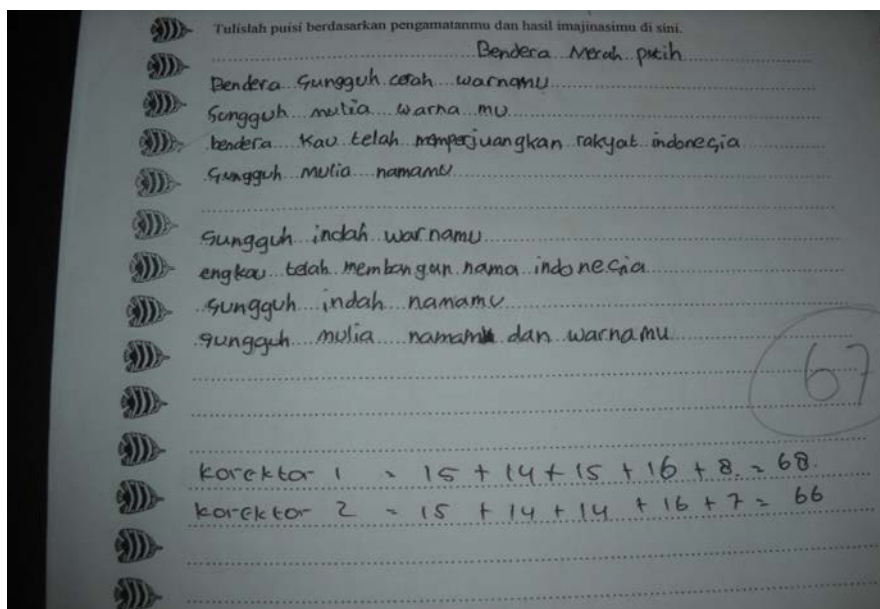 Tulislah puisi berdasarkan pengamatanmu dan hasil imajinasimu di sini.
Bendera Merah putih
Bendera Sungguh cerah warnamu
Sungguh mulia warna mu
bendera Kau telah memperjuangkan rakyat indonesia
Sungguh mulia namamu
Sungguh indah warnamu
engkau telah membangun nama indonesia
Sungguh indah namamu
sungguh mulia namamu dan warnamu
67
korektor 1 = 15 + 14 + 15 + 16 + 8 = 68.
korektor 2 = 15 + 14 + 14 + 16 + 7 = 66